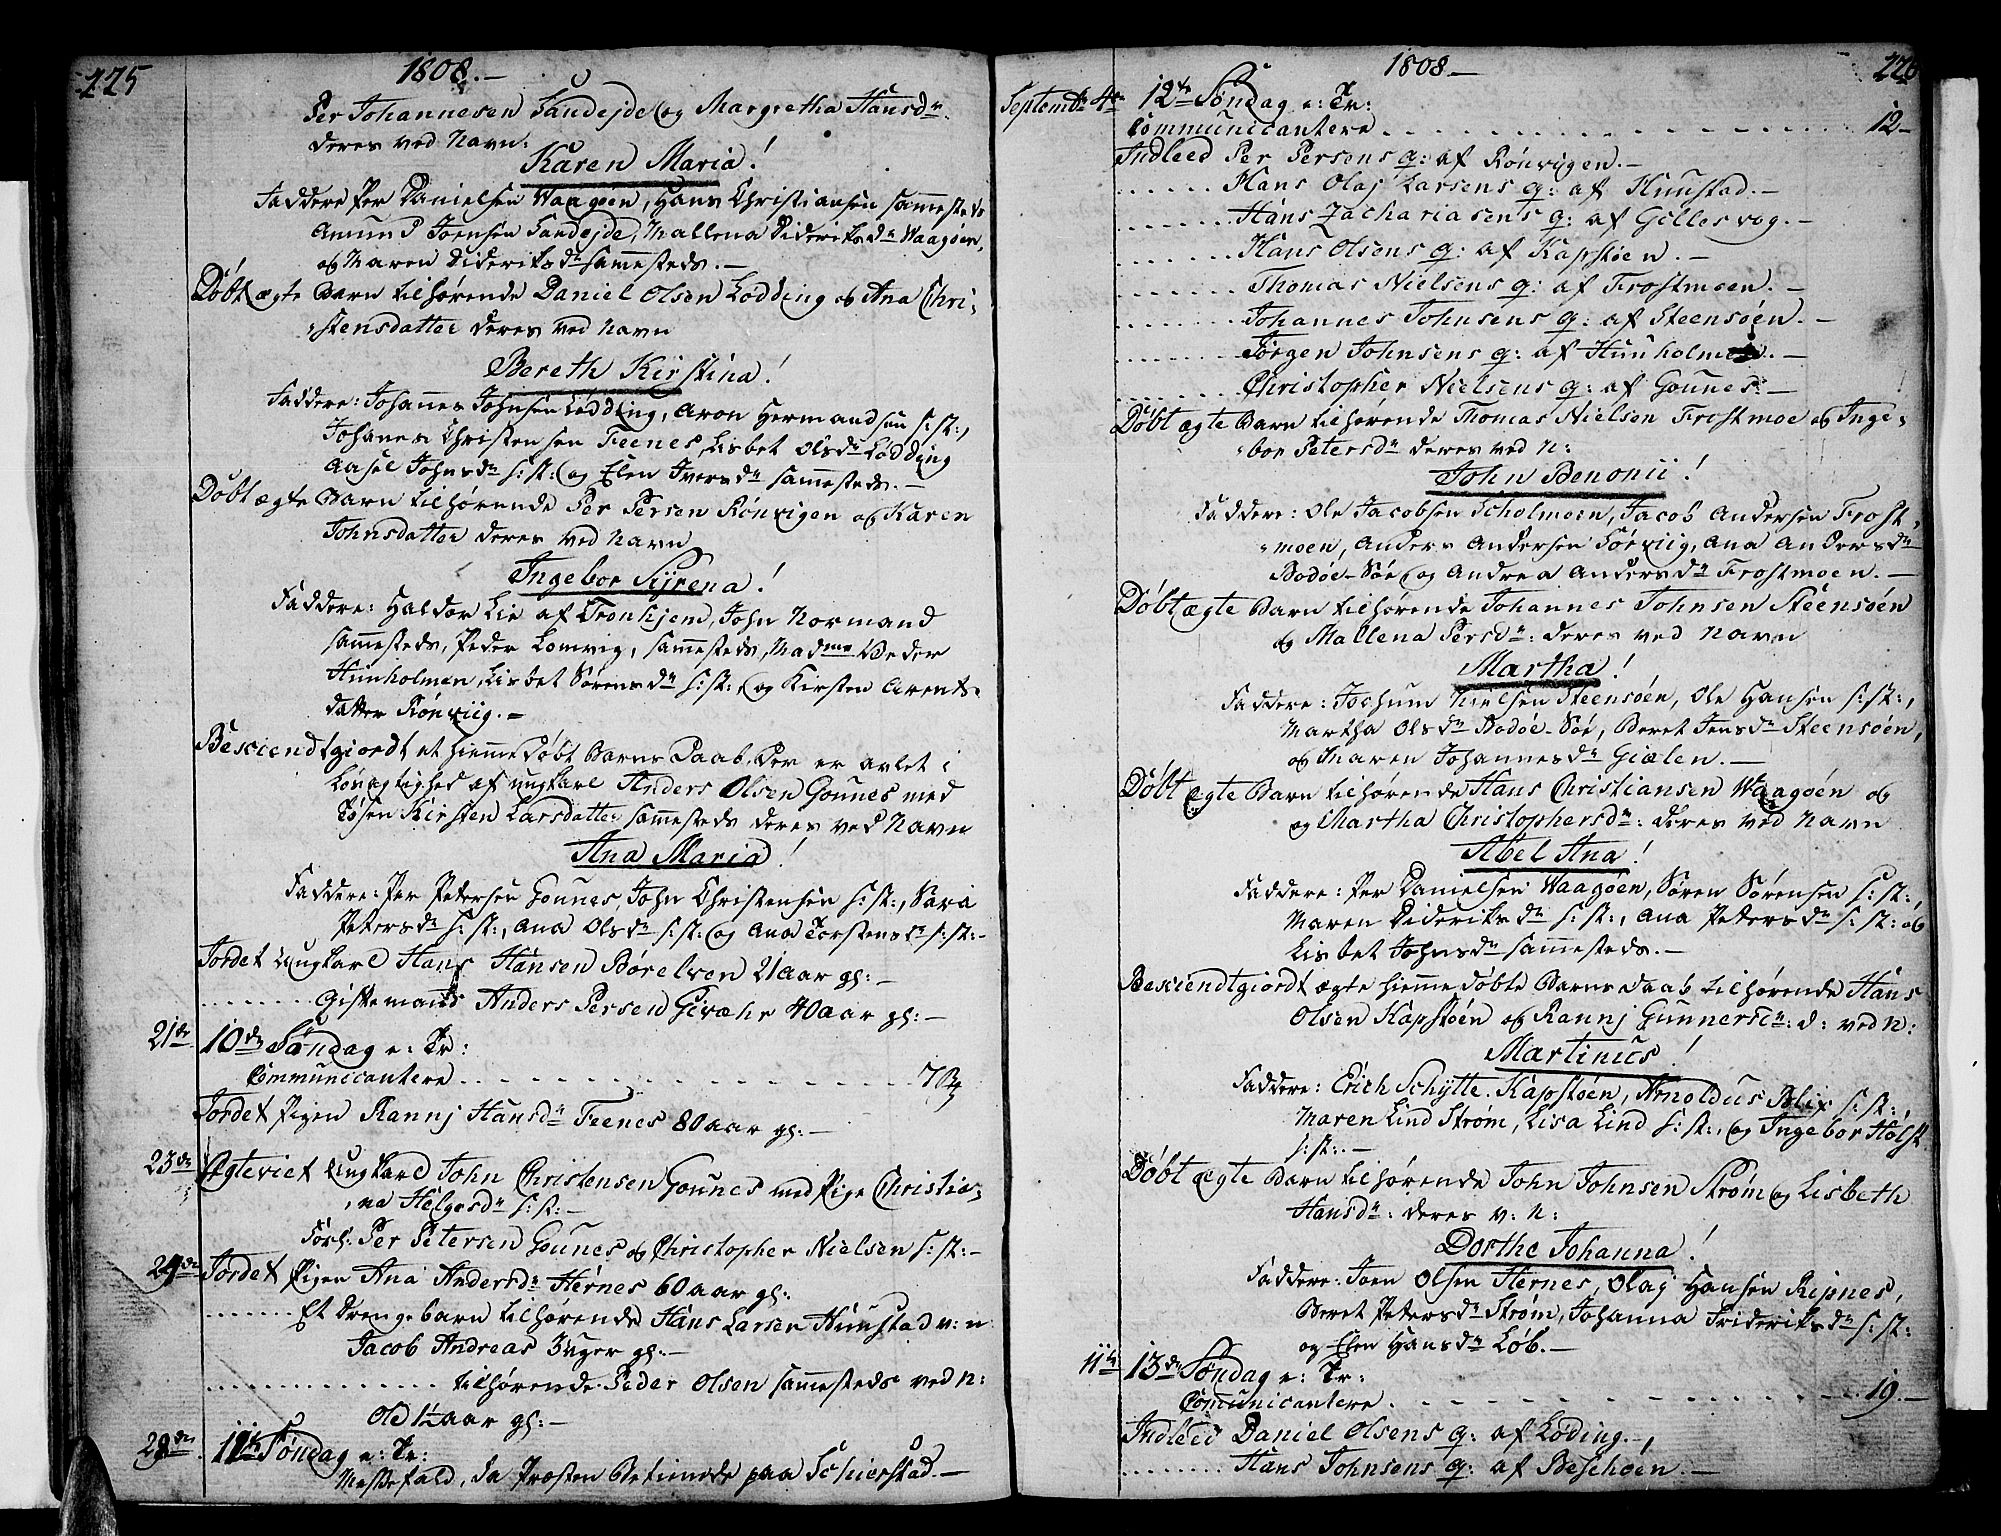 225
1808.—
Per Johannesen Sandejde og Margretha Hansdr.
deres ved Navn:
Karen Maria!
Faddere Per Danielsen Waagøen, Hans Christiansen sammesteds
Amund Joensen Sandejde, Mallena Dideriksdr Waagøen,
og Maren Dideriksdr sammesteds.—
Døbt ægte Barn tilhørende Daniel Olsen Lødding og Ana Chri-
stensdatter deres ved Navn
Bereth Kirstina!
Faddere: Johannes Johnsen Lødding, Aron Hermandsen s:st:,
Johanes Christensen Feenes, Lisbet Olsdr Lødding
Aasel Johnsdr s:st: og Elen Iversdr sammesteds.—
Døbt ægte Barn tilhørende Per Persen Rönvigen og Karen
Johnsdatter deres ved Navn
Ingebor Syrena!
Faddere: Haldor Lie af Tronhjem, John Normand
sammesteds, Peder Lomvig, sammesteds, Madme Bedor
Hunholmen, Lisbet Sörensdr s:st:, og Kirsten Arents-
datter Rönviig.—
Besciendtgiordt et hiemmedøbt Barns Daab, der er avlet i
Løsagtighed af ungkarl Anders Olsen Gounes med
Tøsen Kirsten Larsdatter sammesteds deres ved Navn
Ana Maria!
Faddere: Per Petersen Gounes, John Christensen s:st:, Sara
Petersdr s:st:, Ana Olsdr s:st: og Ana Torstensdr s:st:—
Jordet Ungkarl Hans Hansen Börelsen 21 aar gl:—
........ Giftemand Anders Persen Givæhr 40 aar gl:—
21de 10de Søndag e: Tr:
Communicantere . . . . . . . . . . . 74
Jordet Pigen Rannj Hansdr Feenes 80 aar gl:—
23de Ægteviet Ungkarl John Christensen Gounes med Pige Christia-
na Helgesdr s:st:—
Forl. Per Petersen Gounes og Christopher Nielsen s:st:—
24de Jordet Pigen Ana Andersdr Hernes 60 aar gl:
....... Et Drengebarn tilhørende Hans Larsen Huustad v: n:
Jacob Andreas 3 uger gl:—
.................. tilhørende Peder Olsen sammesteds ved N:
Old 1½ aar gl:—
28de 11te Søndag e: Tr:
Messefald, da Præsten Betiende paa Schierstad.—
1808—
226
Septembr 4de 12te Søndag e: Tr:
Communicantere . . . . . . . . . . . 12—
Indleed Per Persens q: af Rönvigen.—
....... Hans Olaj Larsens q: af Huustad.—
....... Hans Zachariasens q: af Gillesvog.—
....... Hans Olsens q: af Kapstöen.—
....... Thomas Nielsens q: af Frostmoen.—
....... Johannes Johnsens q: af Steensöen.—
....... Jørgen Johnsens q: af Huuholmen.—
....... Christopher Nielsens q: af Gounes.—
Døbt ægte Barn tilhørende Thomas Nielsen Frostmoe og Inge-
bor Petersdr deres ved N:
John Benonii!
Faddere: Ole Jacobsen Scholmoen, Jacob Andersen Frost-
moen, Anders Andersen Sörviig, Ana Andersdr
Bodöe-Söe og Andrea Andersdr Frostmoen.—
Døbt ægte Barn tilhørende Johannes Johnsen Steensöen
og Mallena Persdr: deres ved Navn
Martha!
Faddere: Jochum Nielsen Steensöen, Ole Hansen s:st:,
Martha Olsdr Bodöe-Söe, Beret Jensdr Steensöen,
og Maren Johannesdr Giælen.—
Døbt ægte Barn tilhørende Hans Christiansen Waagöen og
og Martha Christophersdr: deres ved Navn
Abel Ana!
Faddere: Per Danielsen Waagøen, Sören Sörensen s:st:,
Maren Dideriksdr s:st:, Ana Petersdr s:st: og
Lisbet Johnsdr sammesteds.—
Besciendtgiordt ægte hiemmedøbte Barns Daab tilhørende Hans
Olsen Kapstöen og Rannj Gunnersdr: d: ved N:
Martinus!
Faddere: Erich Schytte Kapstöen, Arnoldus Blix s:st:,
Maren Lind Strøm, Lisa Lind s:st:, og Ingebor Holst
s:st:.—
Døbt ægte Barn tilhørende John Johnsen Strøm og Lisbeth
Hansdr: deres v: N:
Dorthe Johanna!
Faddere: Joen Olsen Hernes, Olaj Hansen Ripnes,
Beret Petersdr Strøm, Johanna Frideriksdr s:st:
og Elen Hansdr Løb.—
11te 13de Søndag e: Tr:
Communicantere . . . . . . . . . . . 19.—
Indleed Daniel Olsens q: af Löding.—
....... Hans Johnsens q: af Beschöen.—